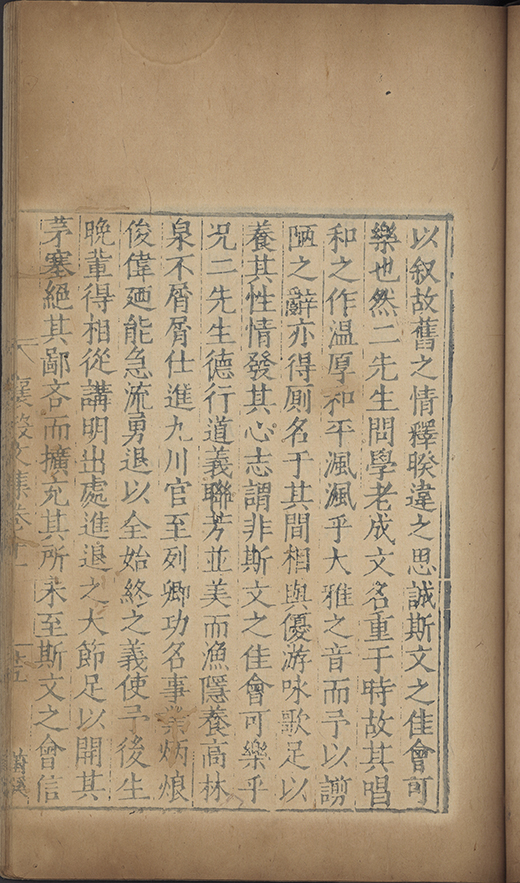 以叙故舊之情釋暌違之思誠斯文之佳會可
樂也然二先生問學老成文名重于時故其唱
和之作溫厚和平渢渢乎大雅之音而予以謭
陋之辭亦得厠名于其間相與優游咏歌足以
養其性情發其心志謂非斯文之佳會可樂乎
況二先生德行道義聯芳並美而漁隱養高林
泉不屑屑仕進九川官至列卿功名事業炳烺
俊偉廼能急流勇退以全始終之義使予後生
晚輩得相從講明出處進退之大節足以開其
茅塞絕其鄙吝而擴充其所未至斯文之會信
文集卷十一